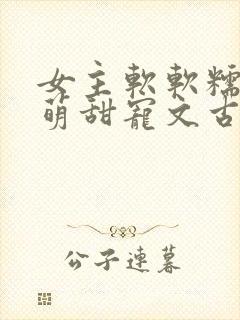 女主軟軟糯
萌甜寵文古
公子連暮